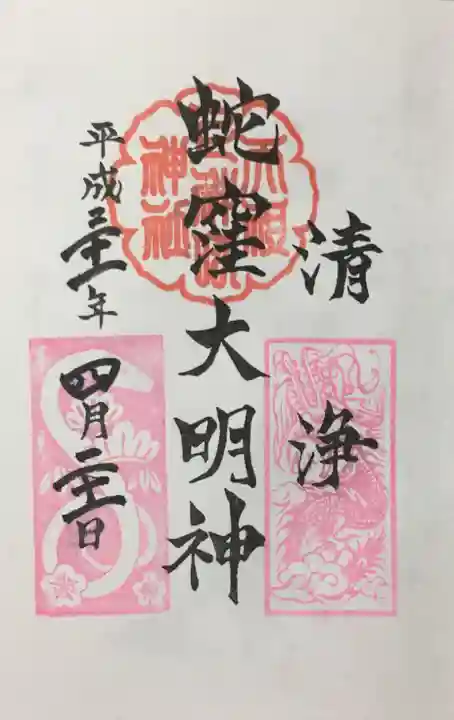 清浄
蛇窪大明神
平成三十一年
四月二十一日